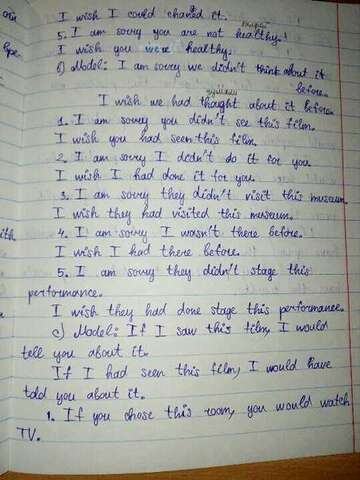 I wish I could change it.
5. I am sorry you are not healthy!
I wish you were healthy.
b) Model: I am sorry we didn't think about it
before.
I wish we had thought about it before.
1. I am sorry you didn't see this film.
I wish you had seen this film.
2. I am sorry I didn't do it for you.
I wish I had done it for you.
3. I am sorry they didn't visit this museum.
I wish they had visited this museum.
4. I am sorry I wasn't there before.
I wish I had there before.
5. I am sorry they didn't stage this
performance.
I wish they had done stage this performance.
c) Model: If I saw this film, I would
tell you about it.
If I had seen this film, I would have
told you about it.
1. If you chose this room, you would watch
TV.